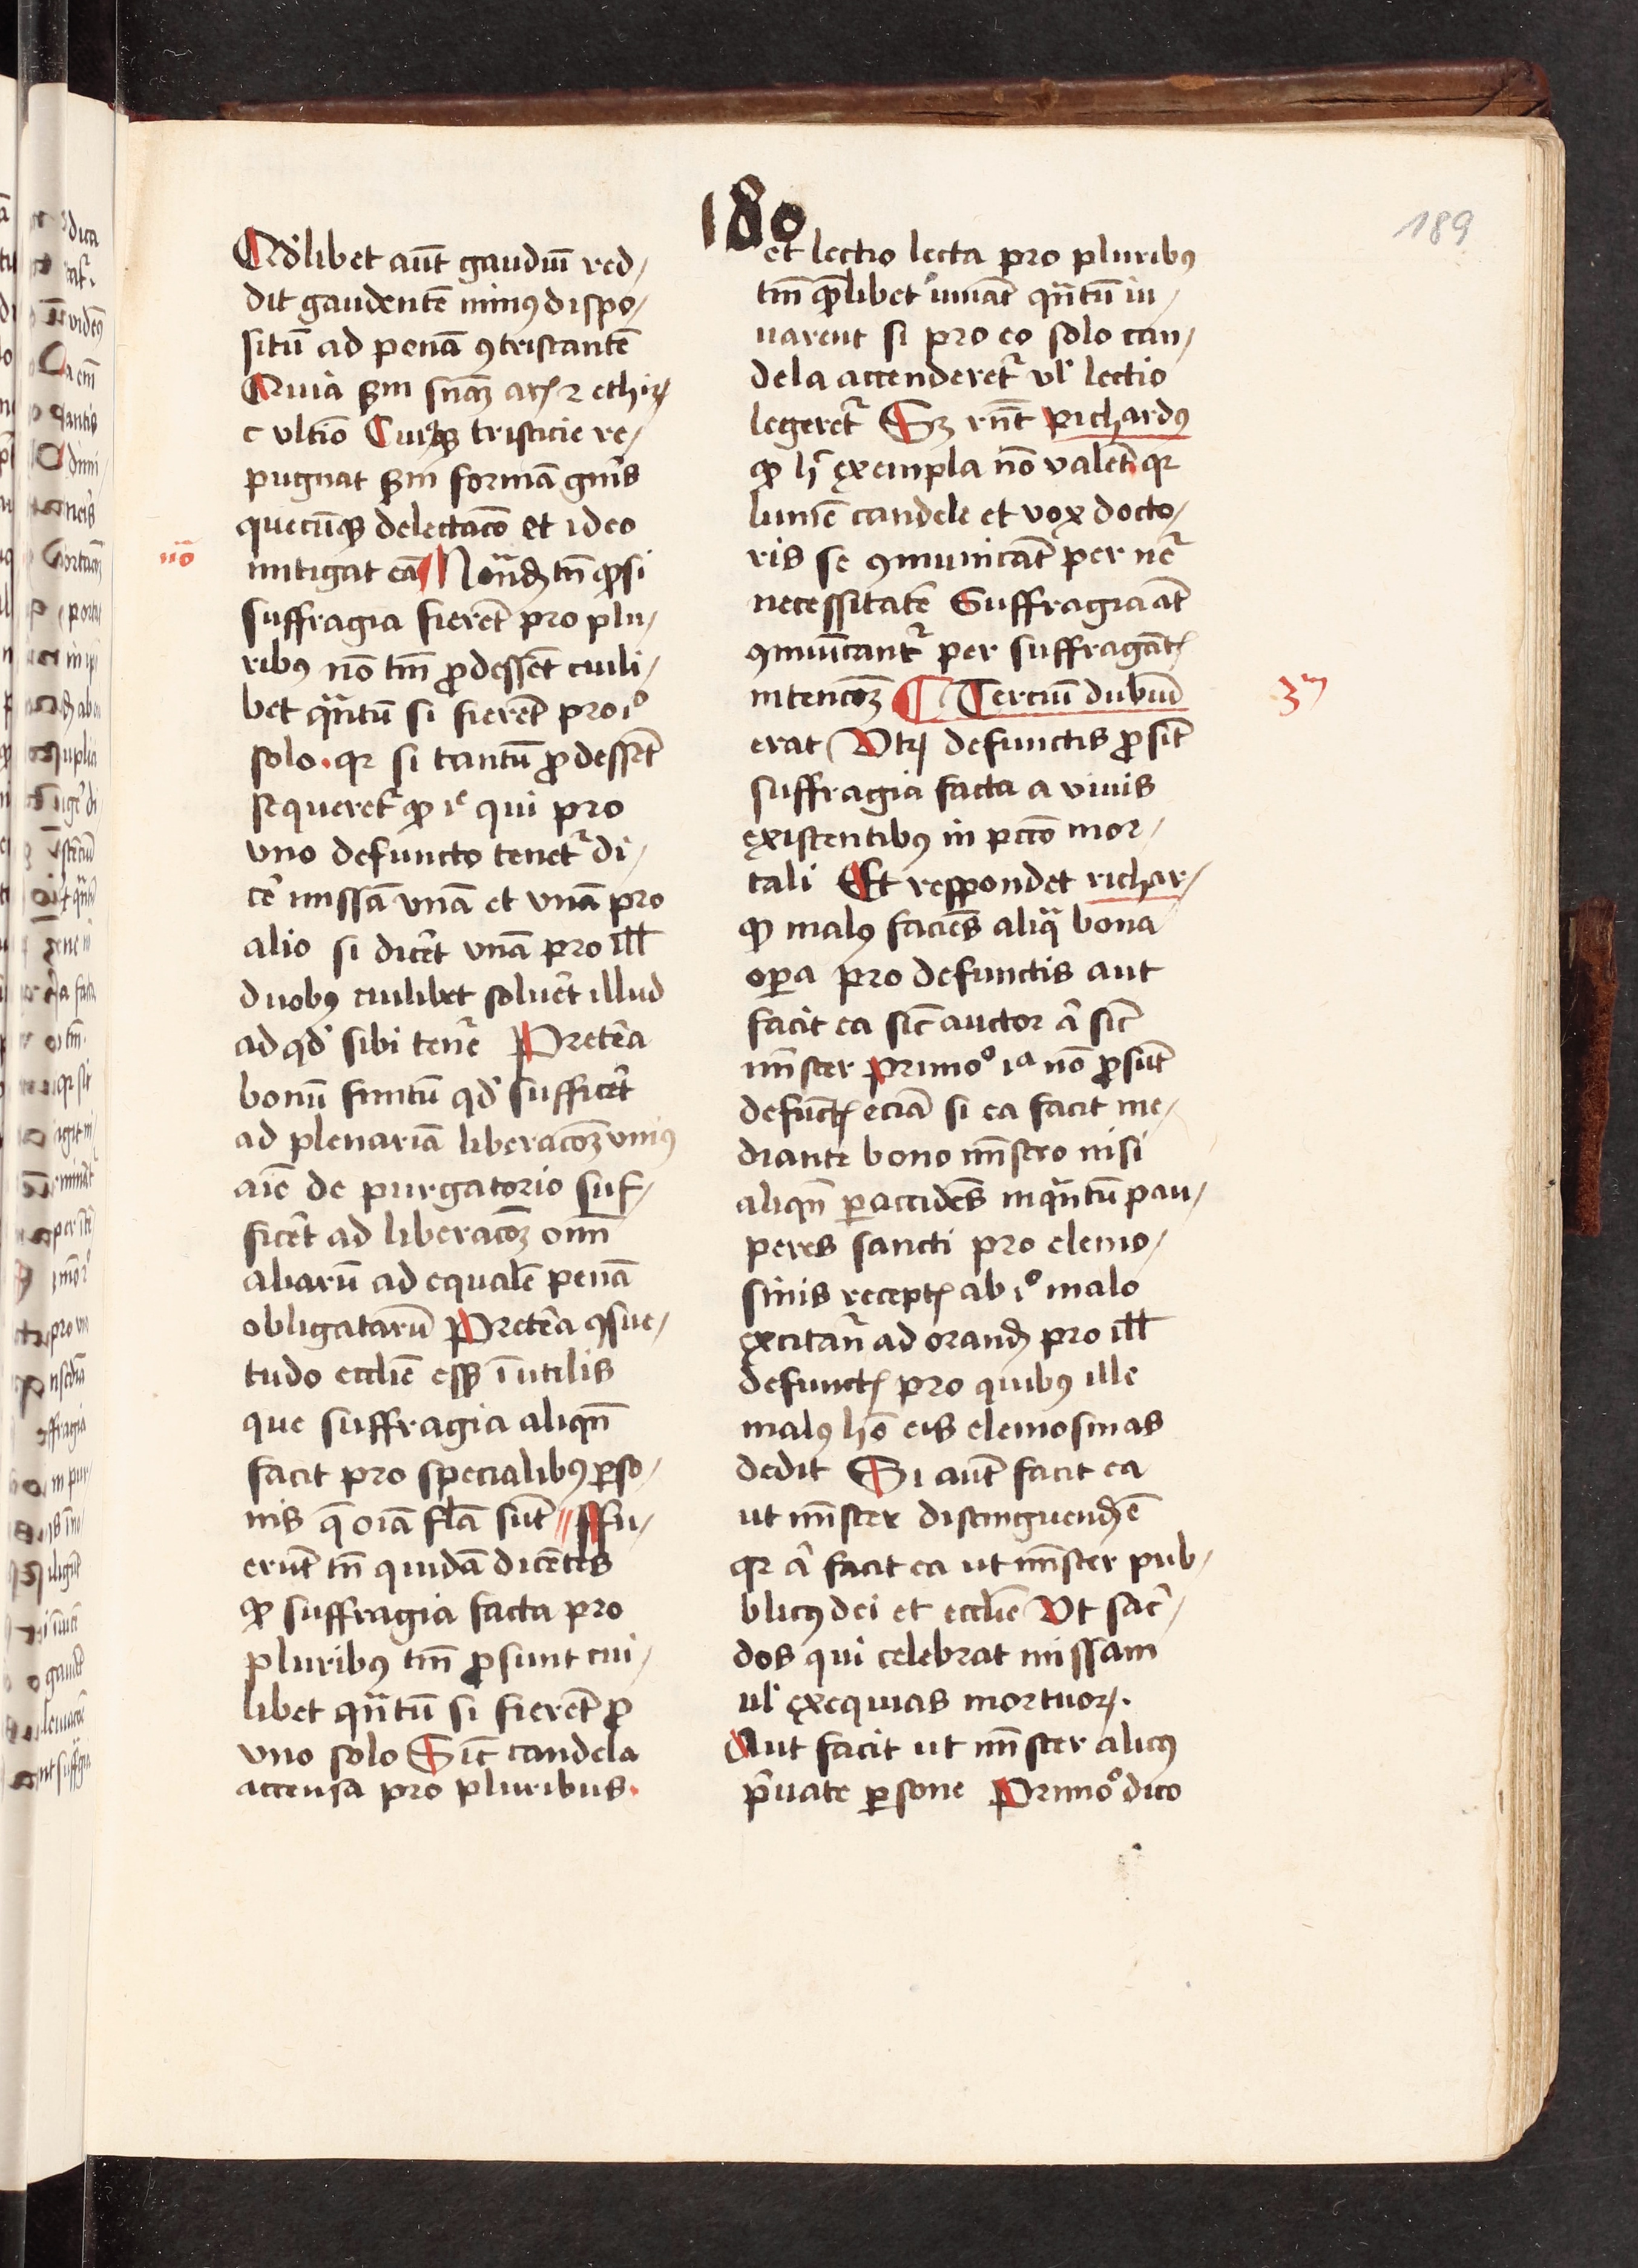 180
189
Qdlibet aūt gaudiū red/
dit gaudentē minꝯ dispo/
sitū ad penā ꝯtristantē
Quia scdm snīaȝ arꝫ 2 ethiꝝ
c vltīo Cuiꝰꝗ tristicie re/
pugnat scdm formā gn̄is
quecūqꝫ delectacō et ideo
mitigat eā Notād tn̄ ꝙ si
suffragia fierēt pro plu/
ribꝯ nō tm̄ ꝓdessēt cuili/
bet qn̄tū si fierēt pro ıº
solo. qꝛ si tantū ꝓdessēt
sequeretᷣ ꝙ iᵉ qui pro
vno defuncto tenetᷣ di/
cē missā vnā et vnā pro
alio si dicēt vnā pro ill̄
duobꝯ cuilibet soluēt illud
ad qd̄ sibi tenēᷣ Pretēa
bonū finitū qd̄ sufficēt
ad plenariā liberacōȝ vniꝯ
aīe de purgatorio suf/
ficēt ad liberacōȝ om̄
aliarū ad equalē penā
obligatarū Pretēa ꝯsue/
tudo eccl̄ie essꝫ īutilis
que suffragia aliqn̄
facit pro specialibꝯ ꝑso/
nis q̄ oīa fl̄a sūt // ffu/
erūt tn̄ quidā dicētes
ꝙ suffragia facta pro
pluribꝯ tm̄ ꝓsunt cui/
libet qn̄tū si fierēt ꝓ
vno solo Sīc candela
accensa pro pluribus.
et lectio lecta pro pluribꝯ
tm̄ qͦlibet iuuāt qn̄tū iu/
uarent si pro eo solo can/
dela accenderetᷣ vl̄ lectio
legeretᷣ Sȝ rn̄t Richardꝯ
ꝙ h̄ exempla nō valēt qꝛ
lumē candele et vox docto/
ris se ꝯmunicāt per nēᷣ
necessitatē Suffragia āt
ꝯmuīcantᷣ per suffragātꝭ
intencōȝ ¶ Terciū dubiū
3ᵐ
erat Vtꝝ defunctis ꝓsīt
suffragia facta a viuis
existentibꝯ in pctō mor/
tali Et respondet richar/
ꝙ malꝯ faciēs aliqͣ bona
oꝑa pro defunctis aut
facit ea sīc auctor aᷣ sīc
mīster Primoº ıª nō ꝓsūt
defūctꝭ eciā si ea facit me/
diante bono mīstro nisi
aliqn̄ ꝑ accidēs inqn̄tū pau/
peres sancti pro elemo/
sinis receptꝭ ab ıº malo
excitan̄ ad orand pro ill̄
defunctꝭ pro quibꝯ ille
malꝯ hō eis elemosinas
dedit Si aūt facit ea
ut mīster distinguendū ē
qꝛ aᷣ facit ea ut mīster pub/
blicꝯ dei et eccl̄ie Vt sacᷣ/
dos qui celebrat missam
ul̄ exequias mortuoꝝ.
Aut facit ut mīster alicꝯ
p̄uate ꝑsone Primoº dico